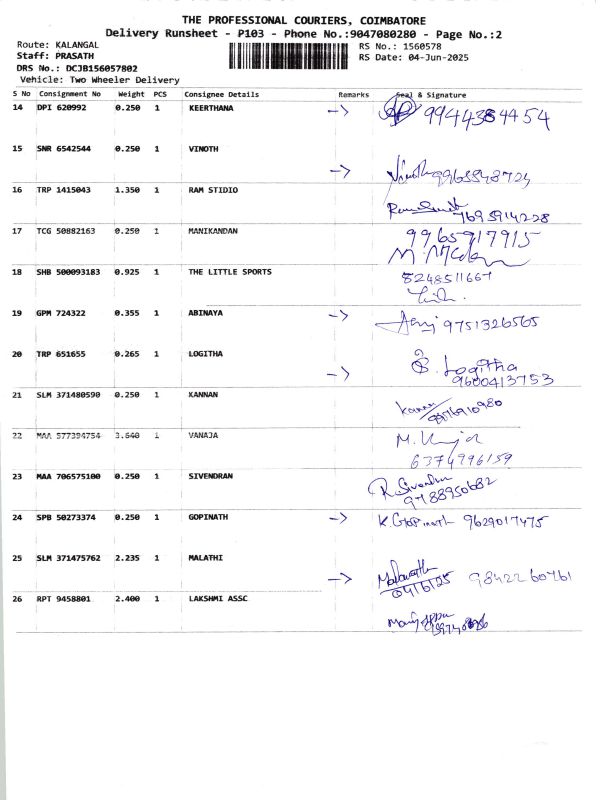 THE PROFESSIONAL COURIERS, COIMBATORE
Delivery Runsheet - P103 - Phone No.:9047080280 - Page No.:2
Route: KALANGAL RS No.: 1560578
Staff: PRASATH RS Date: 04-Jun-2025
DRS No.: DCJB156057802
Vehicle: Two Wheeler Delivery
S No Consignment No Weight PCS Consignee Details Remarks Seal & Signature
14 DPI 620992 0.250 1 KEERTHANA -> 9944384454
15 SNR 6542544 0.250 1 VINOTH
->
16 TRP 1415043 1.350 1 RAM STIDIO
7695914228
17 TCG 50882163 0.250 1 MANIKANDAN 9965917915
18 SHB 500093183 0.925 1 THE LITTLE SPORTS 8248511667
19 GPM 724322 0.355 1 ABINAYA -> 9751326565
20 TRP 651655 0.265 1 LOGITHA
-> Logitha
9600413753
21 SLM 371480590 0.250 1 KANNAN
Kannan
22 MAA 577394754 3.640 1 VANAJA
6374996159
23 MAA 706575100 0.250 1 SIVENDRAN R. Sivendran
24 SPB 50273374 0.250 1 GOPINATH -> K. Gopinath 9629017475
25 SLM 371475762 2.235 1 MALATHI
-> 9842260761
26 RPT 9458801 2.400 1 LAKSHMI ASSC